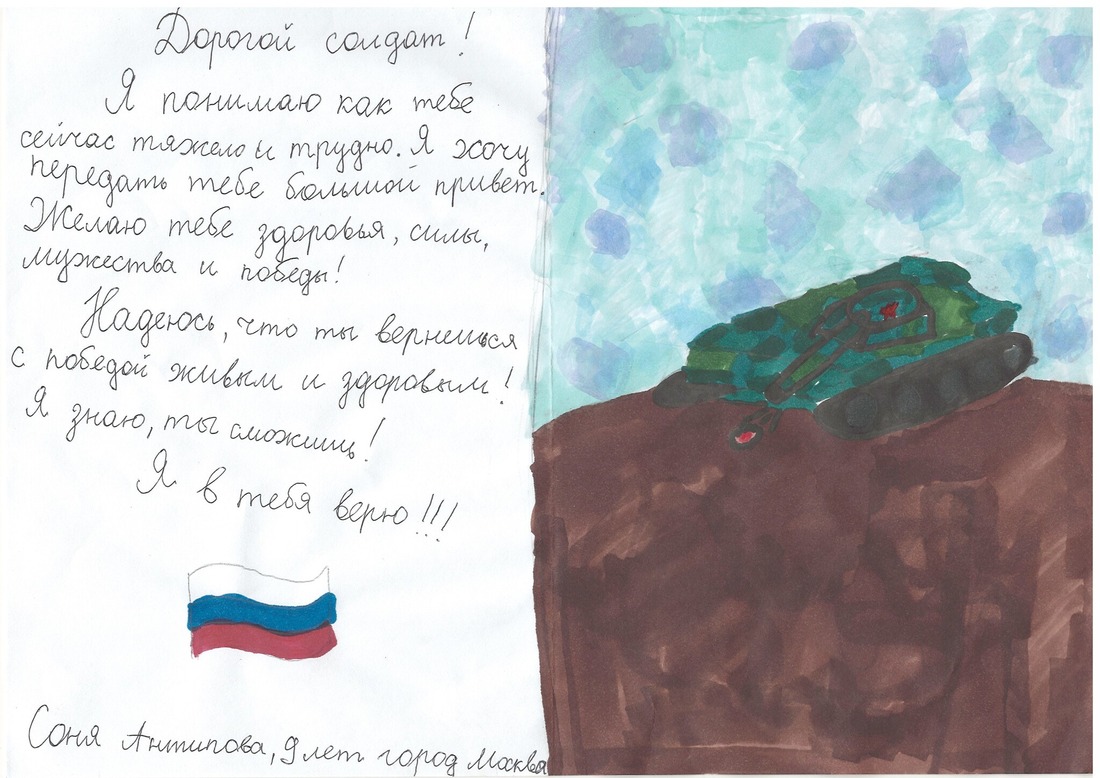 Дорогой солдат!
Я понимаю как тебе
сейчас тяжело и трудно. Я хочу
передать тебе большой привет.
Желаю тебе здоровья, силы,
мужества и победы!
Надеюсь, что ты вернешься
с победой живым и здоровым!
Я знаю, ты сможишь!
Я в тебя верю!!!
Соня Антипова, 9 лет город Москва